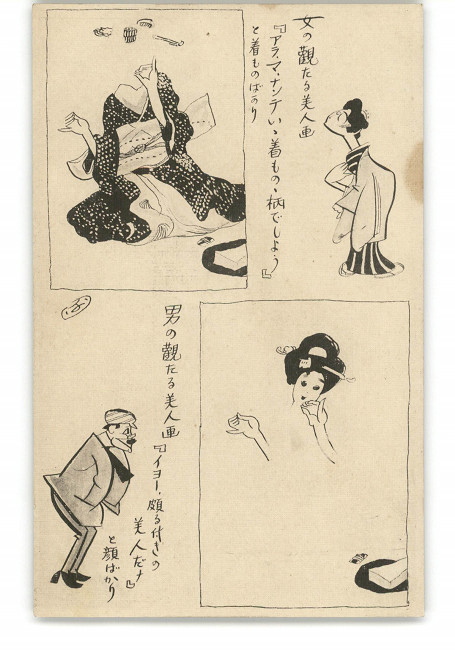 女の觀たる美人画
『アラ、マ、ナンテいゝ着ものゝ柄でしよう』
と着ものばかり
男の觀たる美人画『イヨー、頗る付きの
美人だナ』
と顔ばかり